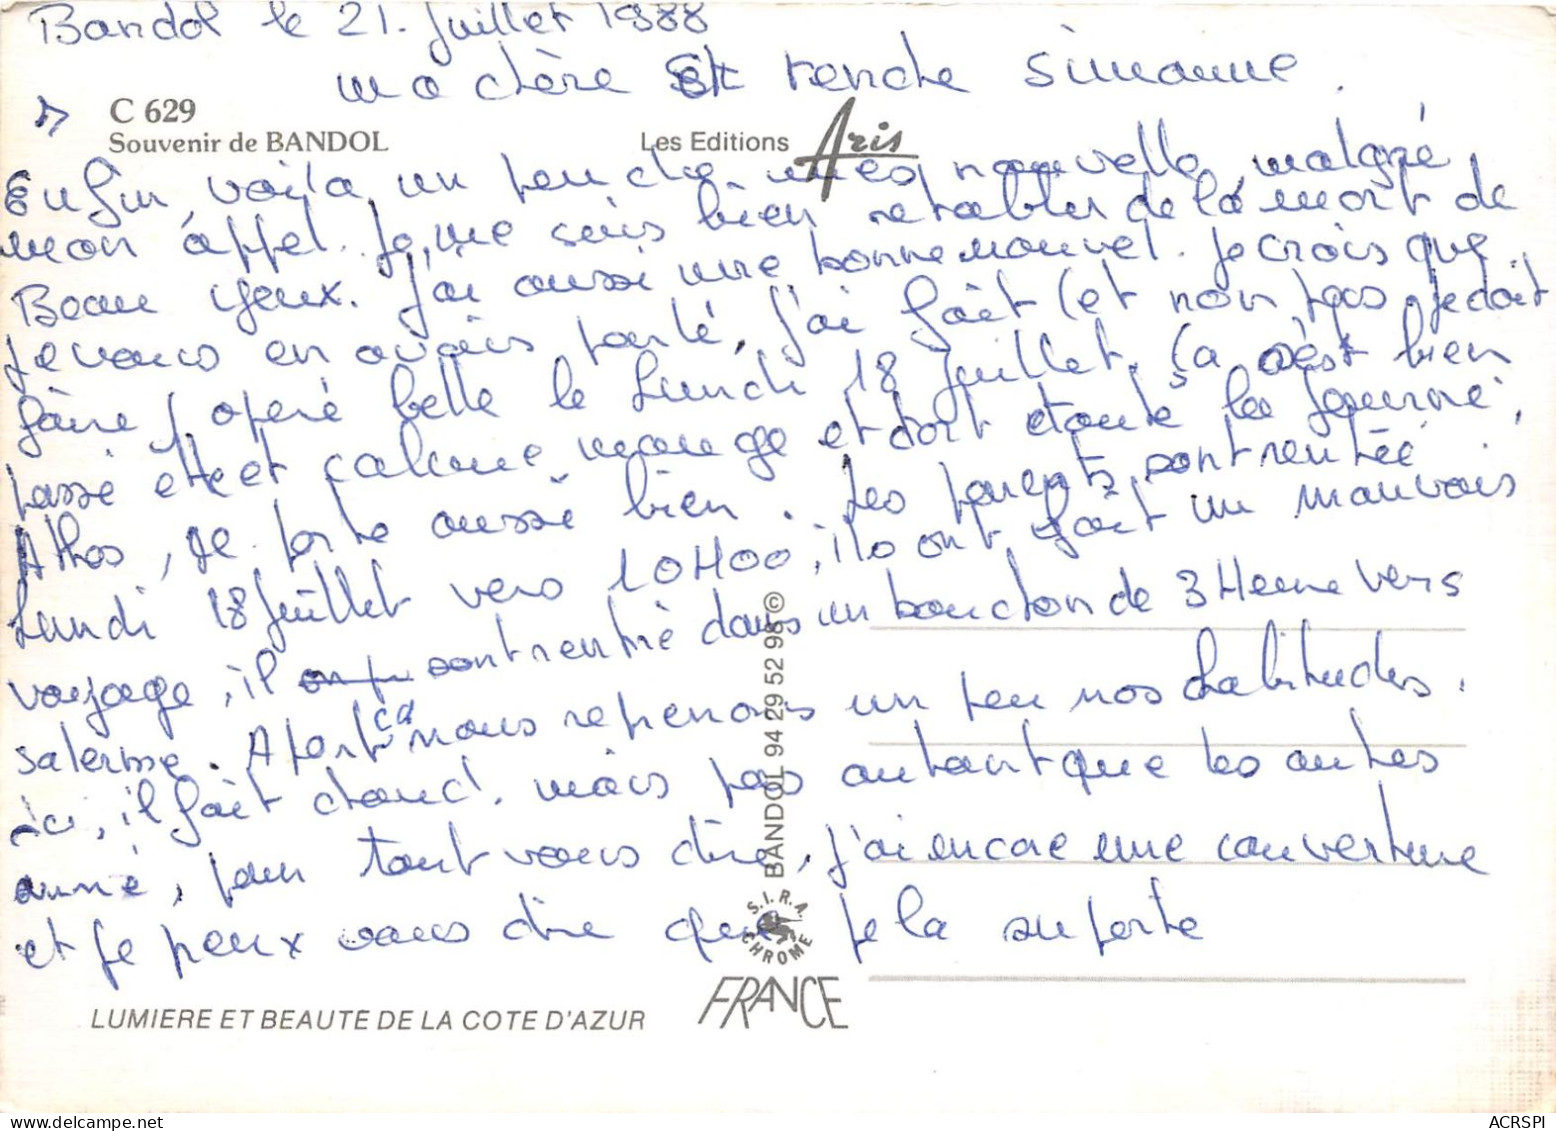 Bandol le 21. Juillet 1988
ma chère et tendre Simonne.
C 629
Souvenir de BANDOL
Les Editions Aris
Enfin, voila, un peu de mes nouvelle, malgré
mon appel. Je, me suis bien retabler de la mort de
Beau yeux. J'ai aussi une bonne nouvel. Je crois que
je vous en avais parlé, j'ai fait (et non pas. Je doit
faire) operé belle le Lundi 18 Juillet. Ca c'est bien
passé elle et calme mange et dort toute la journé,
Athos, se porte aussi bien. Les parents sont rentrée
Lundi 18 Juillet vers 10H00, ils ont fait un mauvais
voyage, il sont rentré dans un bouchon de 3 Heure vers
salerne. A part ca nous reprenons un peu nos habitudes.
ici, il fait chaud, mais pas autant que les autres
anné, pour tout vous dire, j'ai encore une couverture
et je peux vous dire que je la suporte
BANDOL 94 29 52 98 ©
S.I.R.A.
CHROME
FRANCE
LUMIERE ET BEAUTE DE LA COTE D'AZUR
ACRSPI